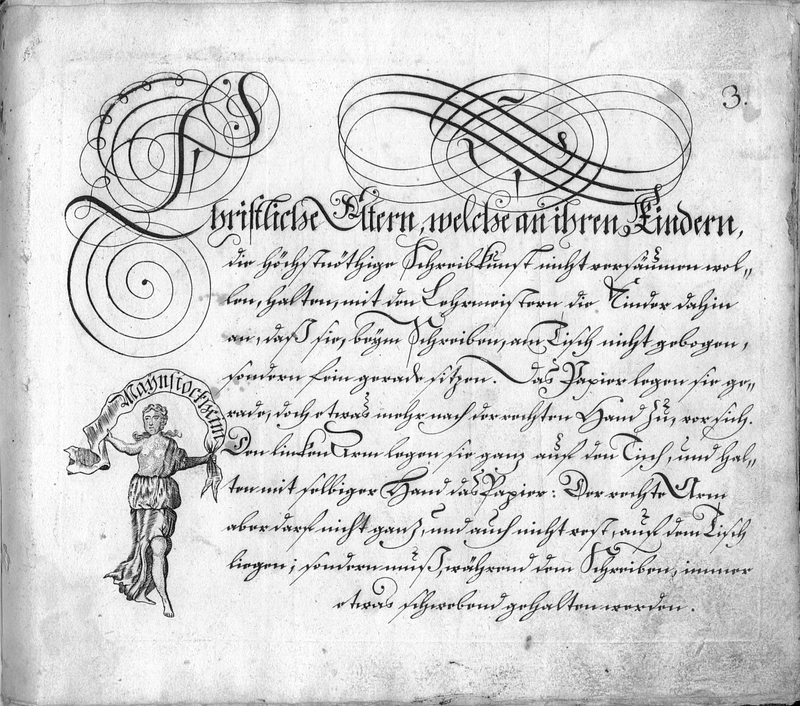 3.
Christliche Eltern, welche an ihren Kindern,
die höchstnöthige Schreibkunst nicht versäumen wol„
len, halten, mit den Lehrmeistern die Kinder dahin
an, daß sie, beÿm Schreiben, am Tisch nicht gebogen,
sondern fein gerade sitzen. Das Papier legen sie ge„
rade, doch etwas mehr nach der rechten Hand zu, vor sich.
Den linken Arm legen sie ganz auf den Tisch, und hal„
ten mit selbiger Hand das Papier: Der rechte Arm
aber darf nicht ganz, und auch nicht vest, auf dem Tisch
liegen; sondern muß, während dem Schreiben, immer
etwas schwebend gehalten werden.
Maÿnstockheim